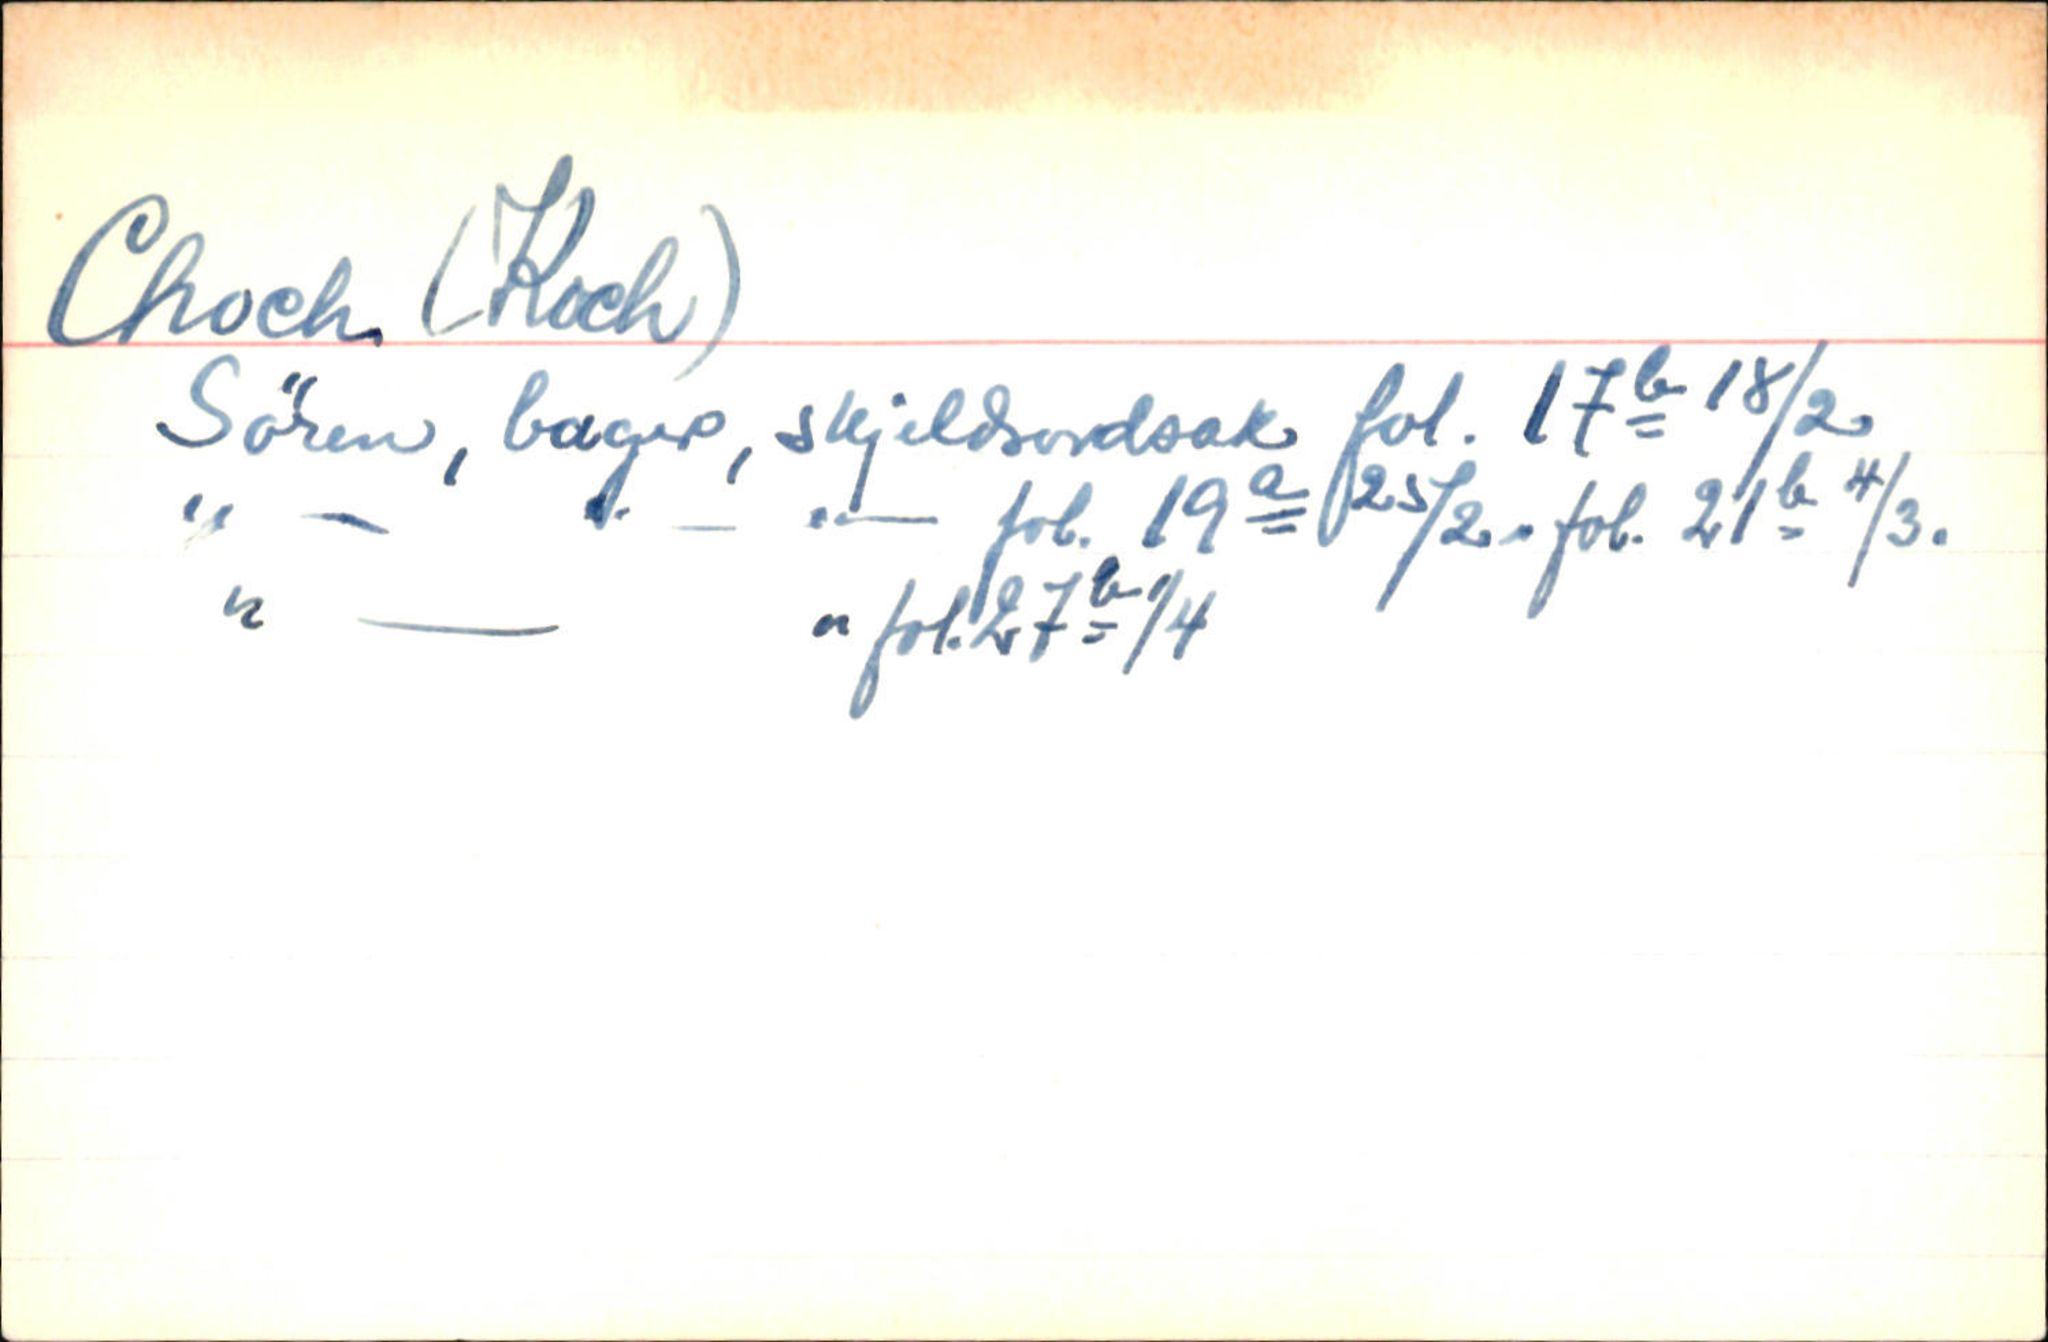 Choch. (Koch)
Sören, bager, skjeldsordsak fol. 17b 18/2.
" — " — " — fol. 19a 25/2. " fol. 21b 4/3.
" — " fol. 27b 1/4